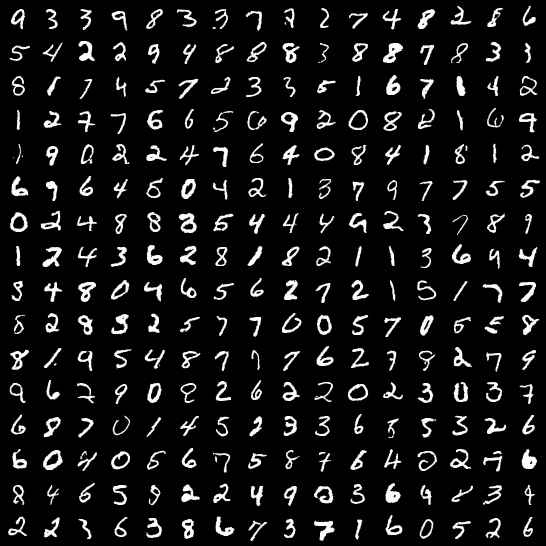 9 3 3 9 8 3 3 7 7 2 7 4 8 2 8 6
5 4 2 2 9 4 8 8 8 3 8 8 7 8 3 3
8 1 7 4 5 7 2 3 3 5 1 6 7 1 4 2
1 2 7 7 6 6 5 6 9 2 0 8 2 1 6 9
1 9 0 2 2 4 7 6 4 0 8 4 1 8 1 2
6 9 6 4 5 0 4 2 1 3 7 9 7 7 5 5
0 2 4 8 8 3 5 4 4 4 9 2 3 7 8 9
1 2 4 3 6 2 8 1 8 2 1 1 3 6 9 4
9 4 8 0 4 6 5 6 2 7 2 1 5 1 7 7
8 2 8 3 2 5 7 7 0 0 5 7 0 5 5 8
8 1 9 5 4 8 7 7 7 6 2 7 8 2 7 9
9 6 2 9 0 8 2 6 2 2 0 2 3 0 3 7
6 8 7 0 1 4 5 2 3 3 6 8 5 3 2 6
6 0 4 0 5 6 7 5 8 7 6 4 2 2 7 6
8 4 6 5 8 2 2 4 9 0 3 6 9 8 3 9
2 2 3 6 3 8 6 7 3 7 1 6 0 5 2 6